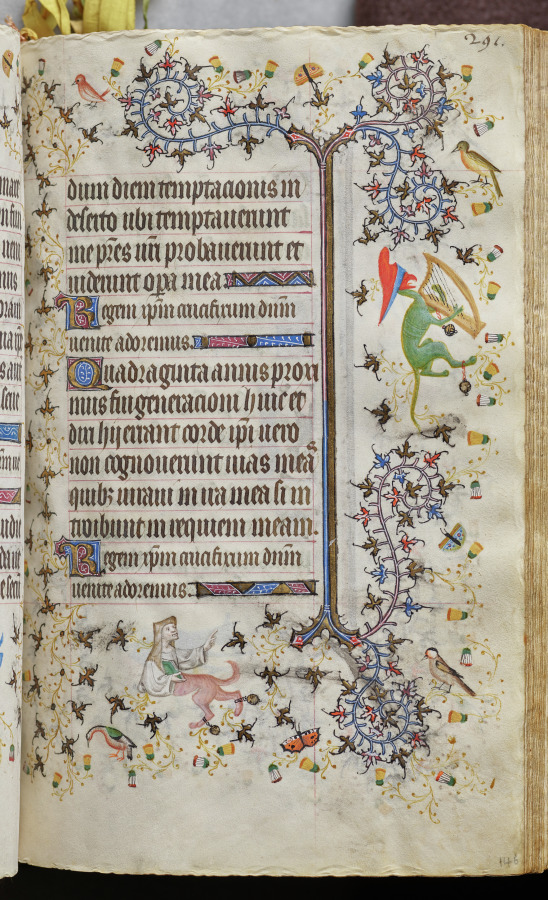 291.
dum diem temptacionis in
deserto ubi temptauerunt
me pr̄es ur̄i probauerunt et
uiderunt op̄a mea
Regem xp̄m crucifixum dn̄m
uenite adoremus.
Quadraginta annis proxi
mus fui generacioni huic et
dixi hii errant corde ip̄i uero
non cognouerunt uias meas
quibꝫ iuraui in ira mea si in
troibunt in requiem meam.
Regem xp̄m crucifixum dn̄m
uenite adoremus.